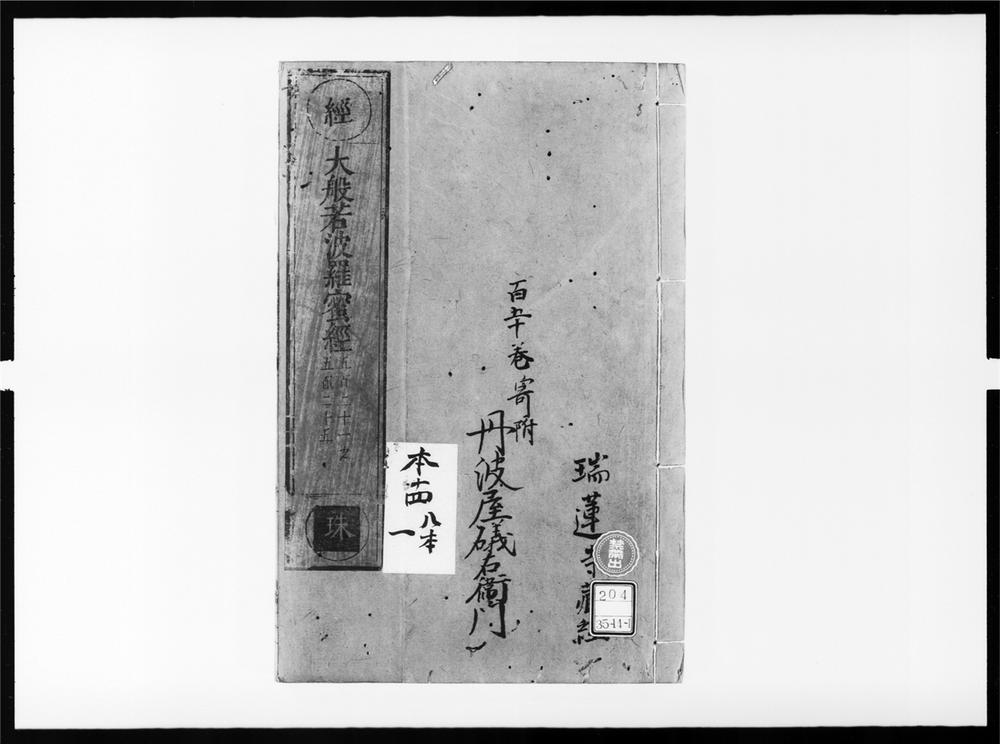 瑞蓮寺藏経
禁帯出
204
35-14-1
百五十巻寄附
丹波屋礒右衛門
本
八本
一
經
大般若波羅蜜經
五百二十一之
五百二十五
珠